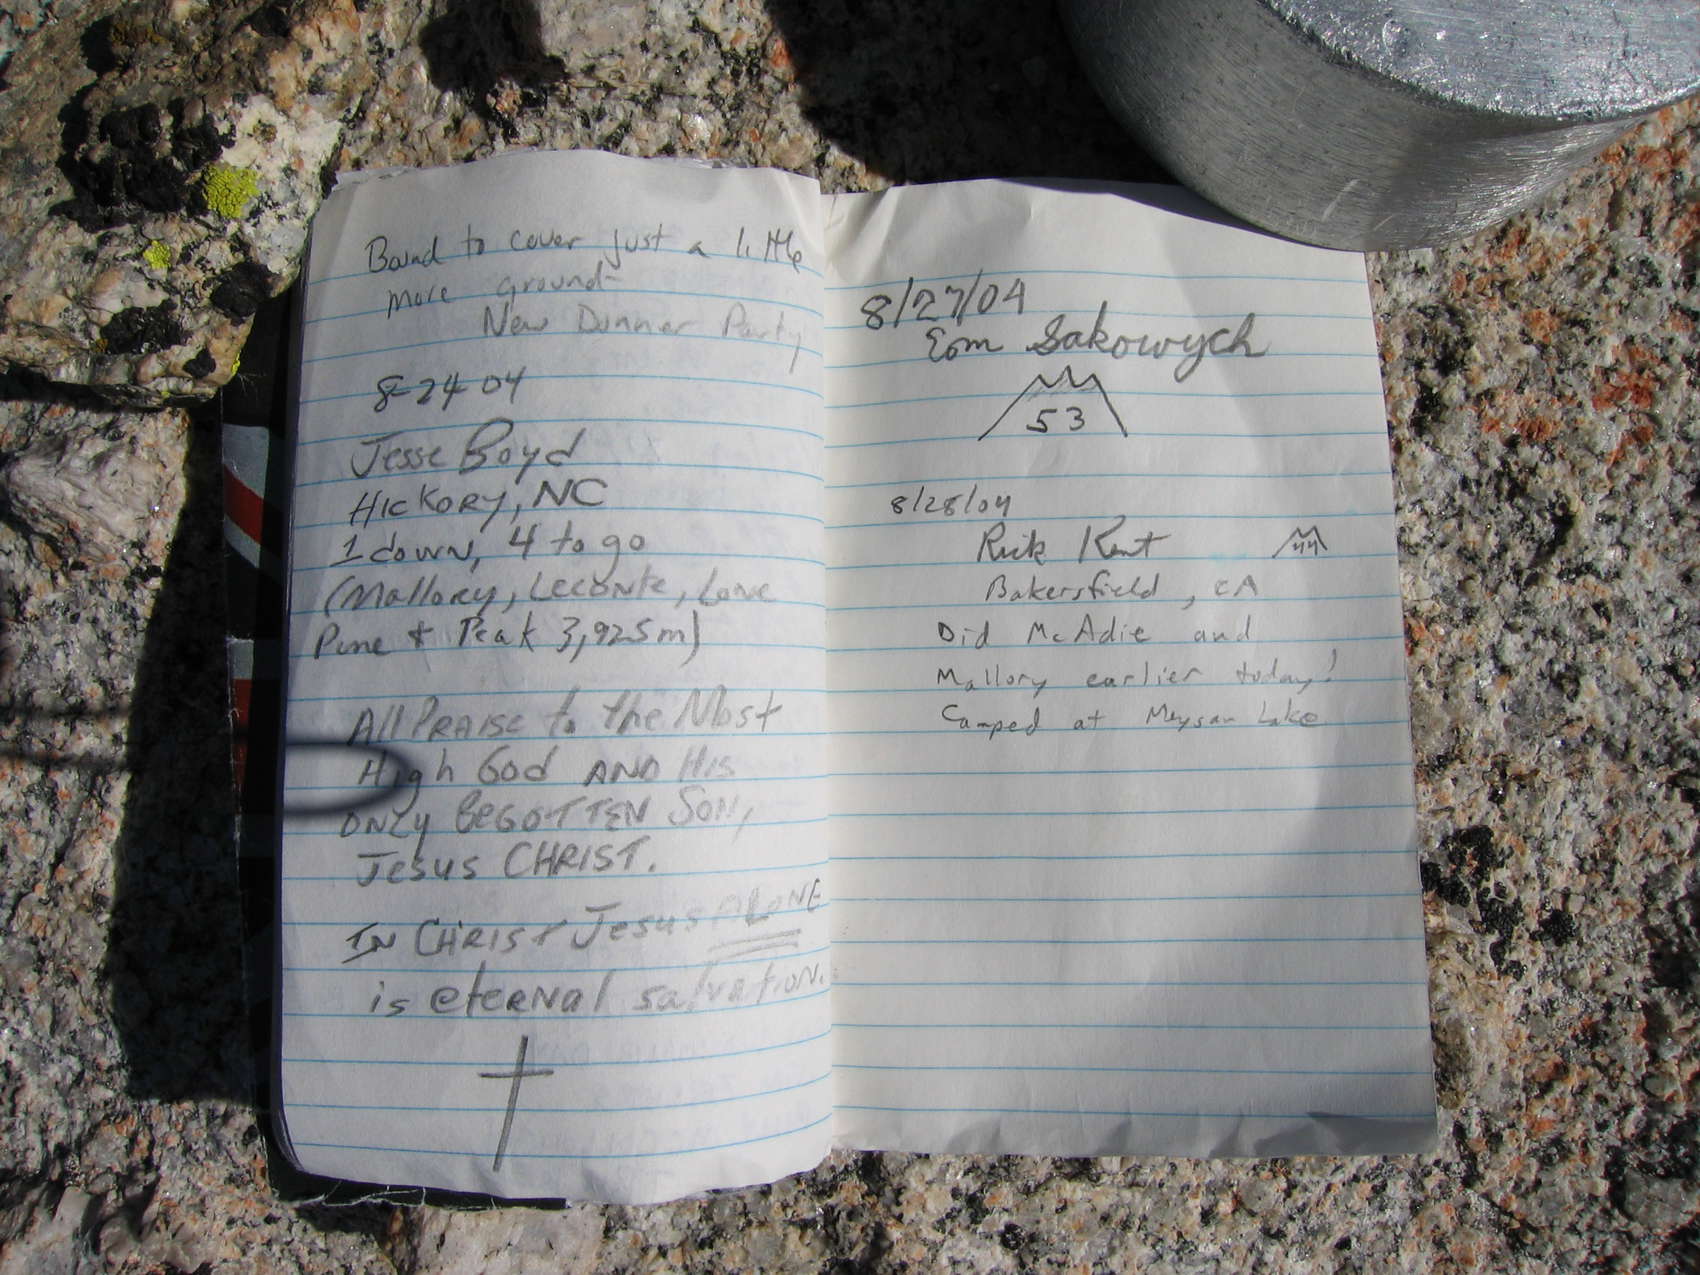 Bound to cover just a little
more ground-
New Donner Party
8-24-04
Jesse Boyd
Hickory, NC
1 down, 4 to go
(Mallory, Leconte, Lone
Pine + Peak 3,925m)
All Praise to the Most
High God AND His
ONLY BEGOTTEN SON,
Jesus CHRIST.
IN CHRIST Jesus ALONE
is eterNal salvation.
8/27/04
Sakowych
53
8/28/04
Rick Kent
44
Bakersfield, CA
Did McAdie and
Mallory earlier today!
Camped at Meysan Lake